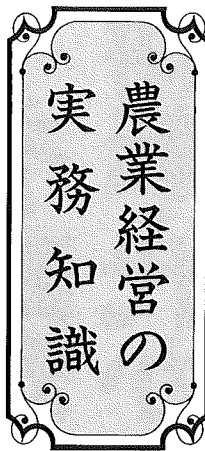 農業経営の
実務知識